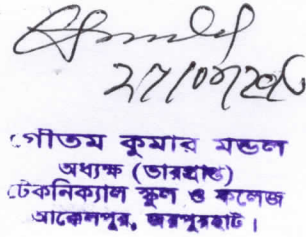 গৌতম কুমার মন্ডল
অধ্যক্ষ (ভারপ্রাপ্ত)
টেকনিক্যাল স্কুল ও কলেজ
আক্কেলপুর, জয়পুরহাট।